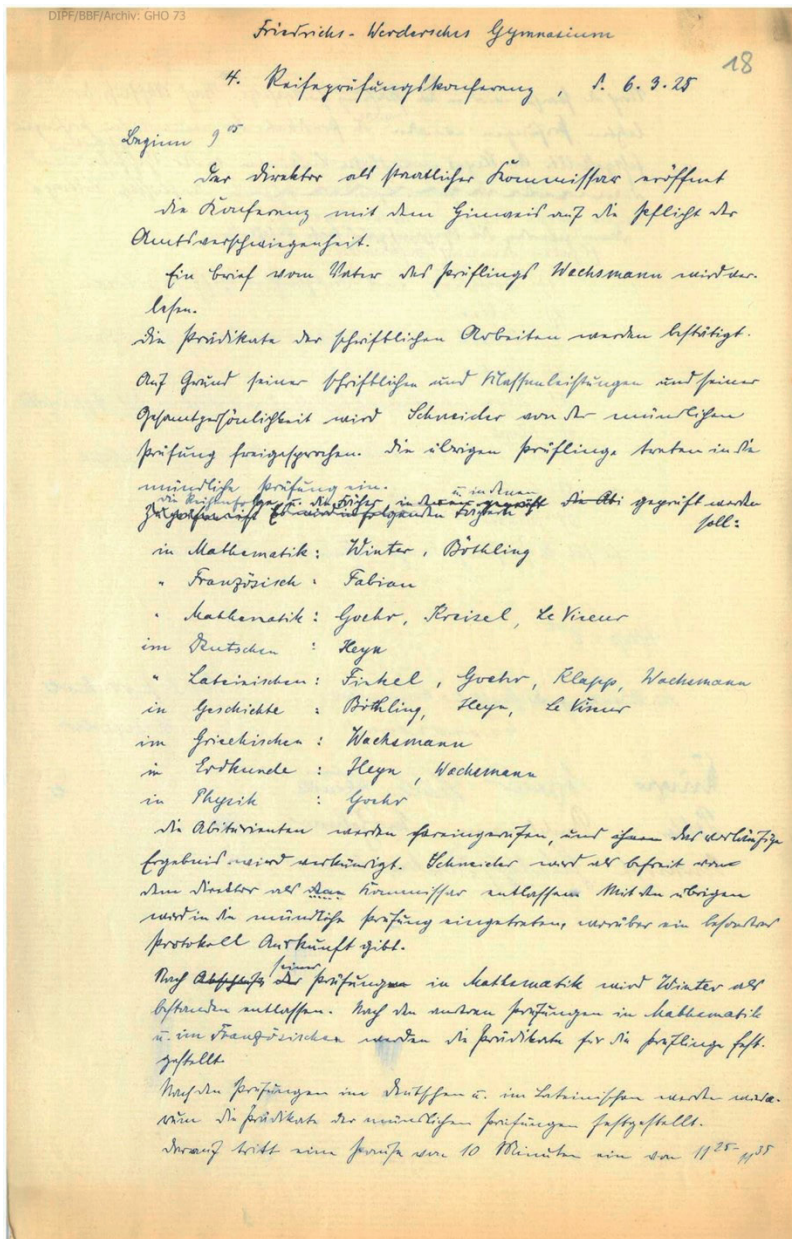 DIPF/BBF/Archiv: GHO 73
Friedrichs-Werdersches Gymnasium
18
4. Reifeprüfungskonferenz, d. 6.3.25
Beginn 9⁰⁵
Der Direktor als staatlicher Kommissar eröffnet
die Konferenz mit dem Hinweis auf die Pflicht der
Amtsverschwiegenheit.
Ein Brief vom Vater des Prüflings Wachsmann wird ver-
lesen.
Die Prädikate der schriftlichen Arbeiten werden bestätigt.
Auf Grund seiner schriftlichen und Klassenleistungen und seiner
Gesamtpersönlichkeit wird Schneider von der mündlichen
Prüfung freigesprochen. Die übrigen Prüflinge treten in die
mündliche Prüfung ein.
die Reihenfolge u. die Fächer, in denen geprüft werden
soll:
in Mathematik: Winter, Böthling
" Französisch: Fabian
" Mathematik: Goehr, Kreisel, Le Viseur
im Deutschen: Heyn
" Lateinischen: Finkel, Goehr, Klapp, Wachsmann
in Geschichte: Böthling, Heyn, Le Viseur
im Griechischen: Wachsmann
in Erdkunde: Heyn, Wachsmann
in Physik: Goehr
Die Abiturienten werden hereingerufen, und ihnen das vorläufige
Ergebnis wird verkündigt. Schneider wird als befreit von
dem Direktor als Kommissar entlassen. Mit den übrigen
wird in die mündliche Prüfung eingetreten, worüber ein besonderes
Protokoll Auskunft gibt.
Nach seiner Prüfung in Mathematik wird Winter als
bestanden entlassen. Nach den anderen Prüfungen in Mathematik
u. im Französischen werden die Prädikate für die Prüflinge fest-
gestellt.
Nach den Prüfungen im Deutschen u. im Lateinischen werden wiede-
rum die Prädikate der mündlichen Prüfungen festgestellt.
Darauf tritt eine Pause von 10 Minuten ein von 11²⁵-11³⁵